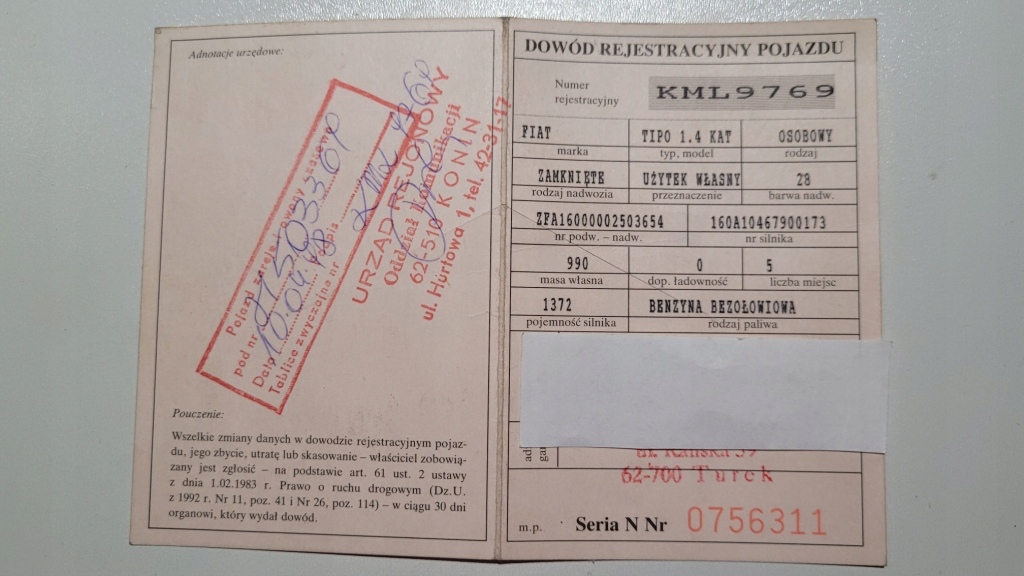 Adnotacje urzędowe:
Pojazd
pod nr
Data
Tablice zwyczajne nr
URZĄD REJONOWY
Oddział Komunikacji
62-510 KONIN
ul. Hurtowa 1, tel. 42-31-17
Pouczenie:
Wszelkie zmiany danych w dowodzie rejestracyjnym pojaz-
du, jego zbycie, utratę lub skasowanie – właściciel zobowią-
zany jest zgłosić – na podstawie art. 61 ust. 2 ustawy
z dnia 1.02.1983 r. Prawo o ruchu drogowym (Dz.U.
z 1992 r. Nr 11, poz. 41 i Nr 26, poz. 114) – w ciągu 30 dni
organowi, który wydał dowód.
DOWÓD REJESTRACYJNY POJAZDU
Numer
rejestracyjny
KML9769
FIAT TIPO 1.4 KAT OSOBOWY
marka typ, model rodzaj
ZAMKNIĘTE UŻYTEK WŁASNY 28
rodzaj nadwozia przeznaczenie barwa nadw.
ZFA16000002503654 160A10467900173
nr podw. – nadw. nr silnika
990 0 5
masa własna dop. ładowność liczba miejsc
1372 BENZYNA BEZOŁOWIOWA
pojemność silnika rodzaj paliwa
62-700 Turek
m.p. Seria N Nr 0756311